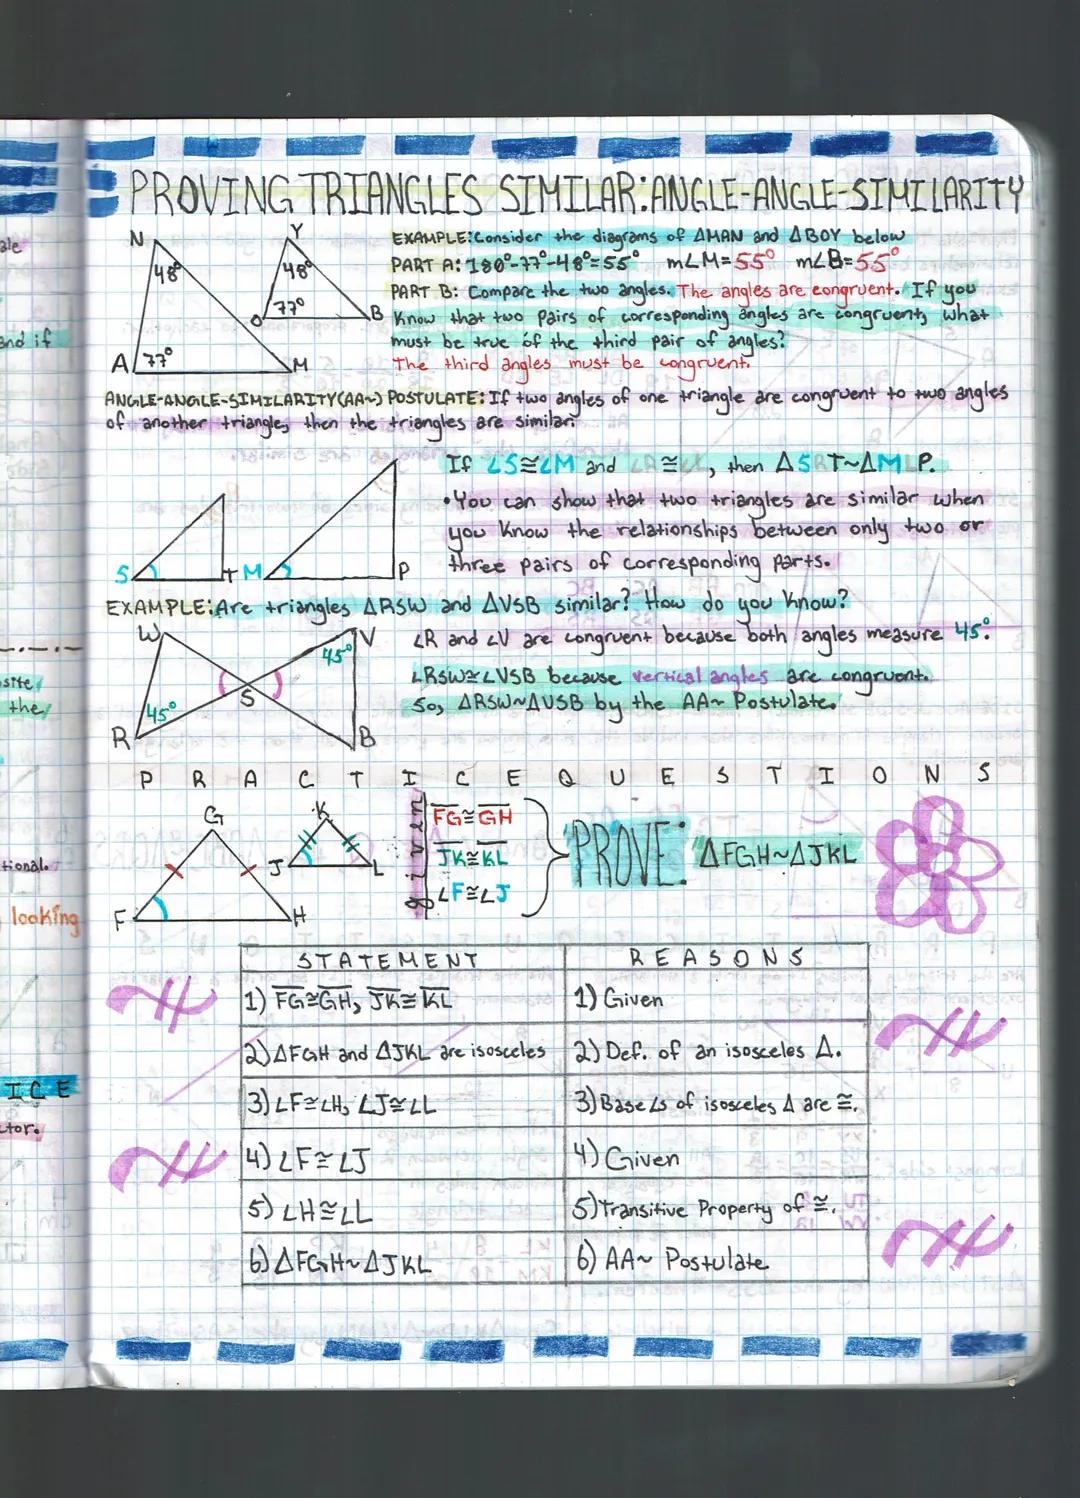 PROVING TRIANGLES SIMILAR: ANGLE-ANGLE-SIMILARITY
N
48°
A
77°
M
Y
48°
O
77°
B
EXAMPLE: Consider the diagrams of ΔMAN and ΔBOY below
PART A: 180°-77°-48°=55° m∠M=55° m∠B=55°
PART B: Compare the two angles. The angles are congruent. If you
know that two pairs of corresponding angles are congruent, what
must be true of the third pair of angles?
The third angles must be congruent.
ANGLE-ANGLE-SIMILARITY(AA~) POSTULATE: If two angles of one triangle are congruent to two angles
of another triangle, then the triangles are similar.
S
T
M
P
If ∠S≅∠M and ≅ , then ΔS T~ΔM P.
•You can show that two triangles are similar when
you know the relationships between only two or
three pairs of corresponding parts.
EXAMPLE: Are triangles ΔRSW and ΔVSB similar? How do you know?
W
V
45°
S
45°
R
B
∠R and ∠V are congruent because both angles measure 45°.
∠RSW≅∠VSB because vertical angles are congruent.
So, ΔRSW~ΔVSB by the AA~ Postulate.
PRACTICE QUESTIONS
G
F
H
K
J
L
given
FG≅GH
JK≅KL
∠F≅∠J
PROVE: ΔFGH~ΔJKL
STATEMENT REASONS
1) FG≅GH, JK≅KL 1) Given
2) ΔFGH and ΔJKL are isosceles 2) Def. of an isosceles Δ.
3) ∠F≅∠H, ∠J≅∠L 3) Base ∠s of isosceles Δ are ≅.
4) ∠F≅∠J 4) Given
5) ∠H≅∠L 5) Transitive Property of ≅.
6) ΔFGH~ΔJKL 6) AA~ Postulate
and if
site
the
tional.
looking
ICE